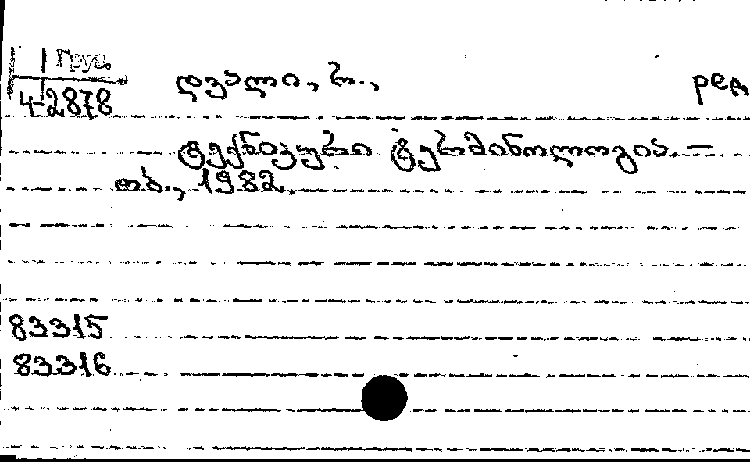 Груз.
4-2878
დვალი, რ., ред
ტექნიკური ტერმინოლოგია. —
თბ., 1982.
83315
83316